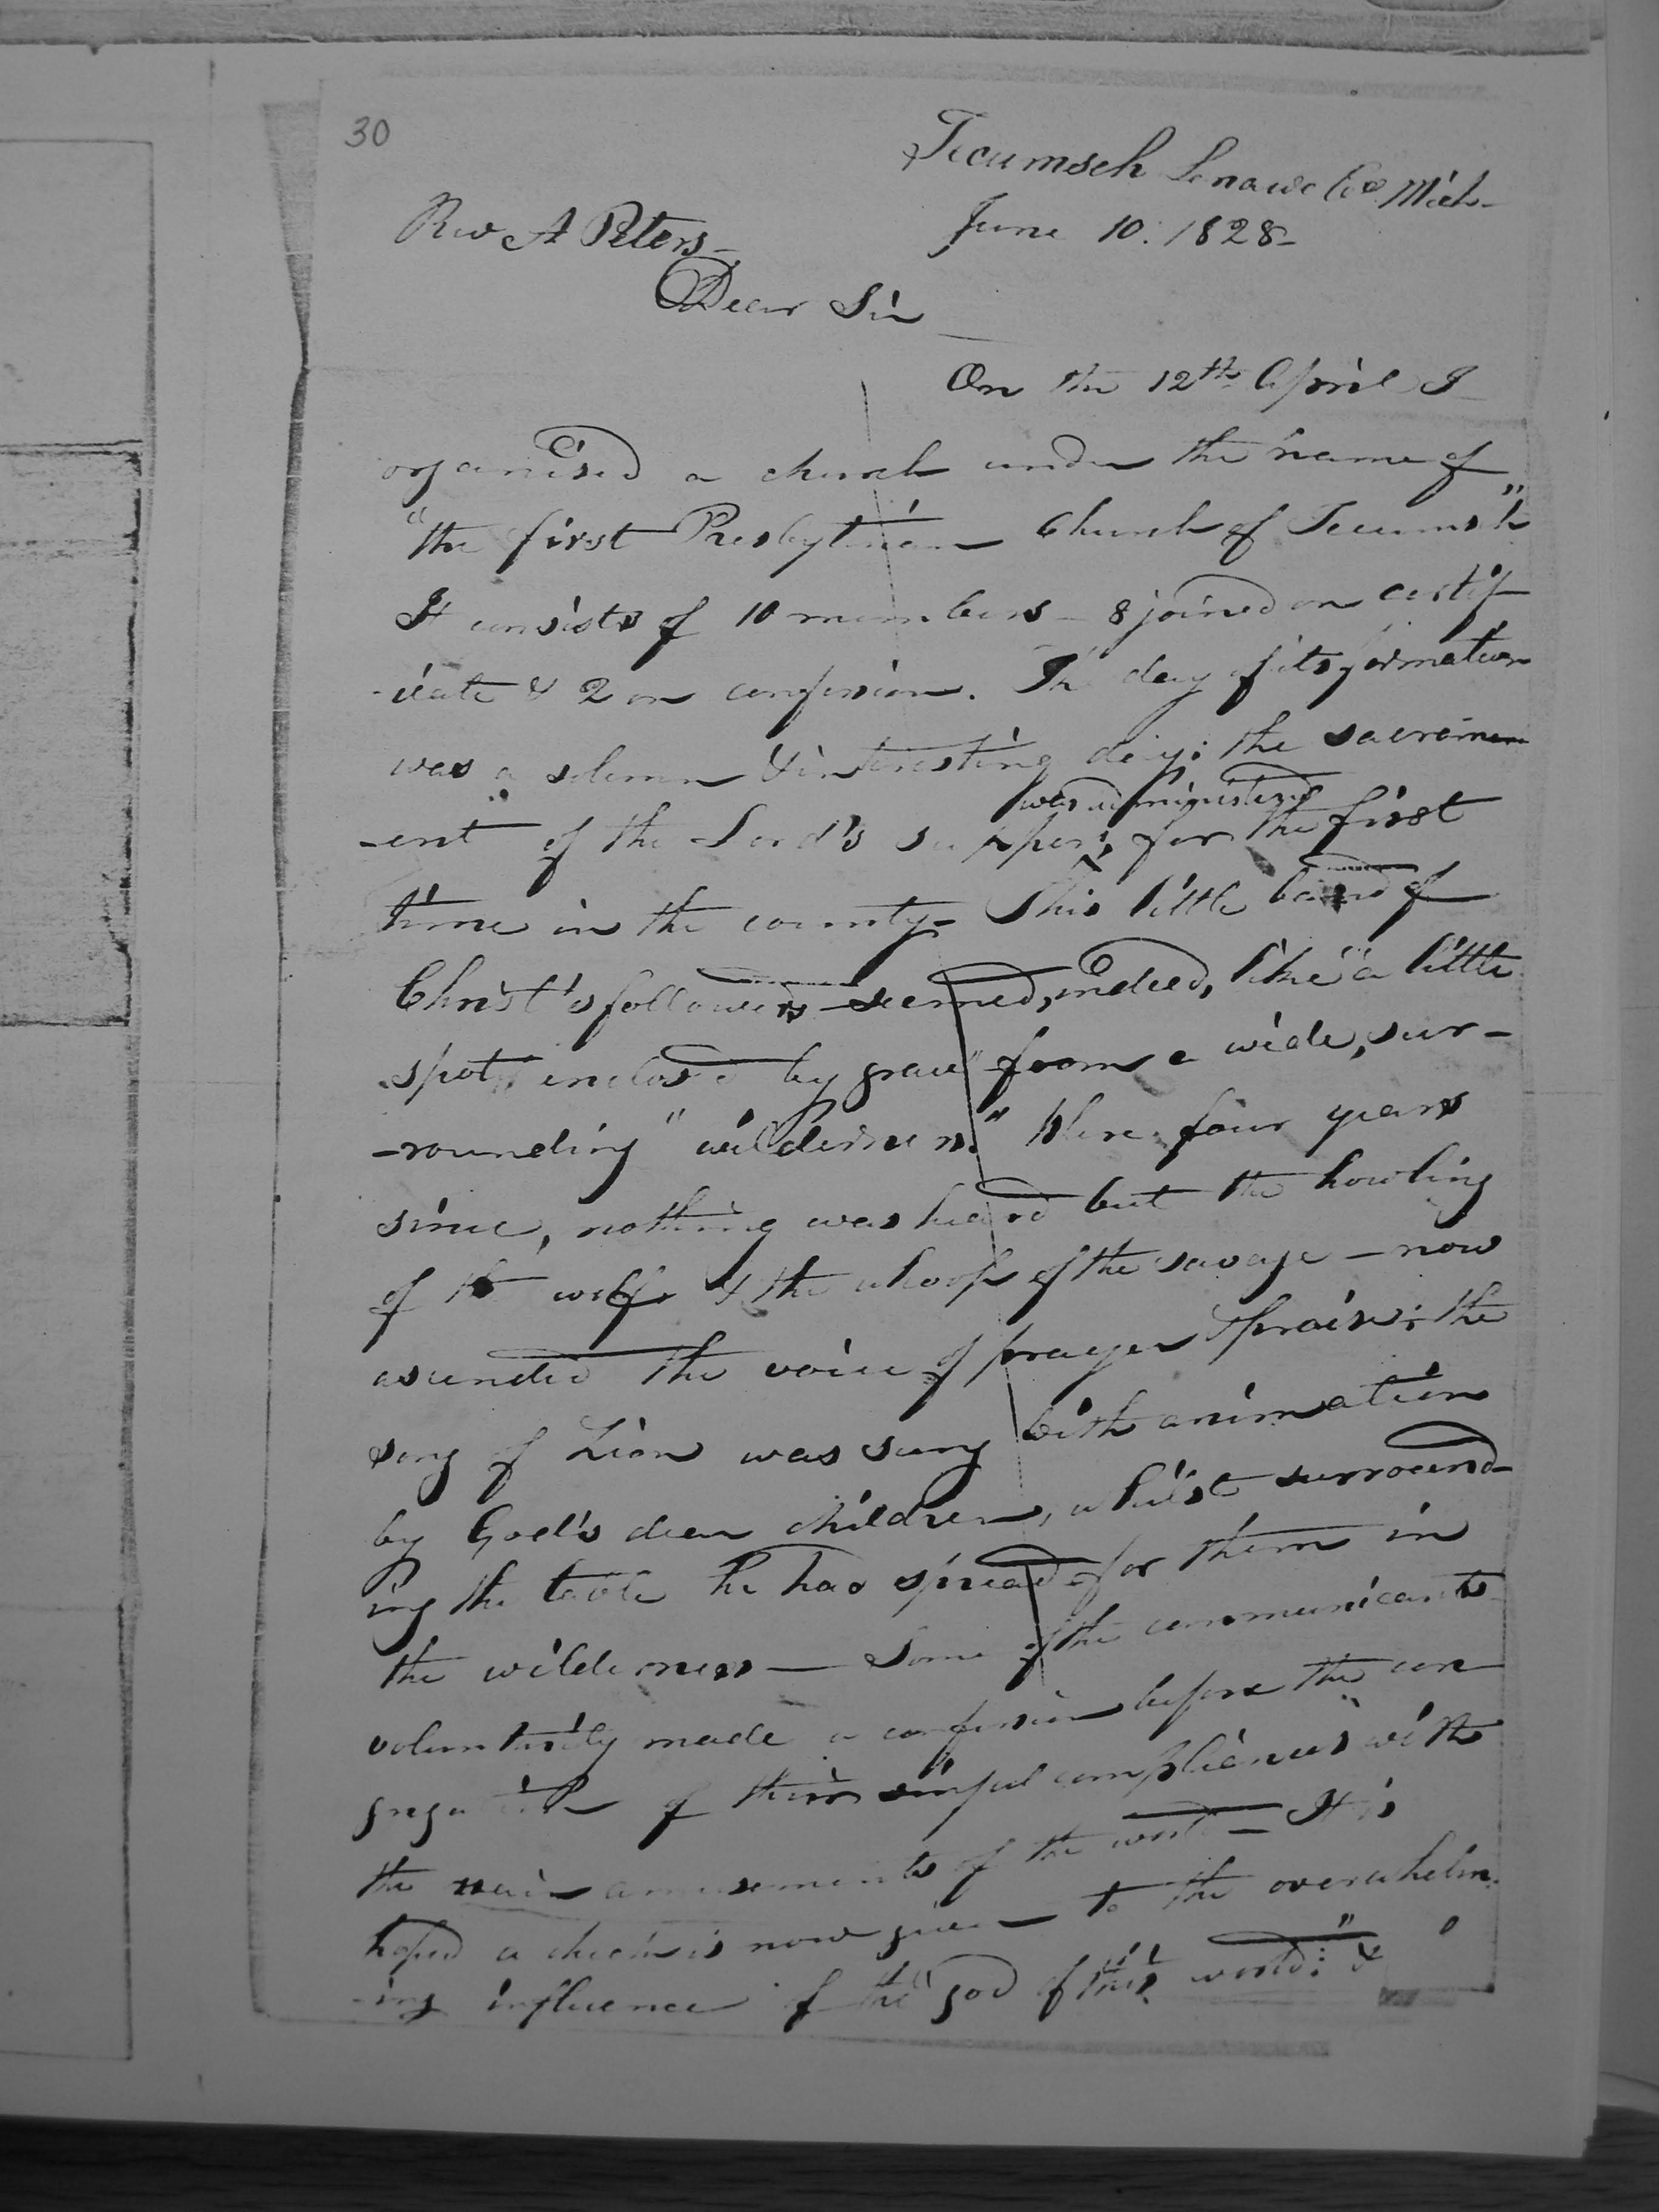 30
Tecumseh Lenawe Co. Mich-
Rev A Peters-
June 10. 1828-
Dear Sir
On the 12th April I
organised a church under the name of
"the first Presbyterian Church of Tecumseh"
It consists of 10 members - 8 joined on certif-
-icate & 2 on confession. The day of its formation
was a solemn & interesting day: the sacram
was administered
-ent of the Lord's supper, for the first
time in the county. This little band of
Christ's followers seemed, indeed, like "a little
spot, enclosed by grace" from a wide, sur-
-rounding "wilderness." Here four years
since, nothing was heard but the howling
of the wolf & the whoop of the savage - now
ascended the voice of prayer & praise; the
song of Zion was sung with animation
by God's dear children, whilst surround-
ing the table he has spread for them in
the wilderness - Some of the communicants
voluntarily made a confession before the con
gregation of their sinful compliances with
the vain amusements of the world - It is
hoped a check is now given to the overwhelm.
-ing influence of the "god of this world:" &